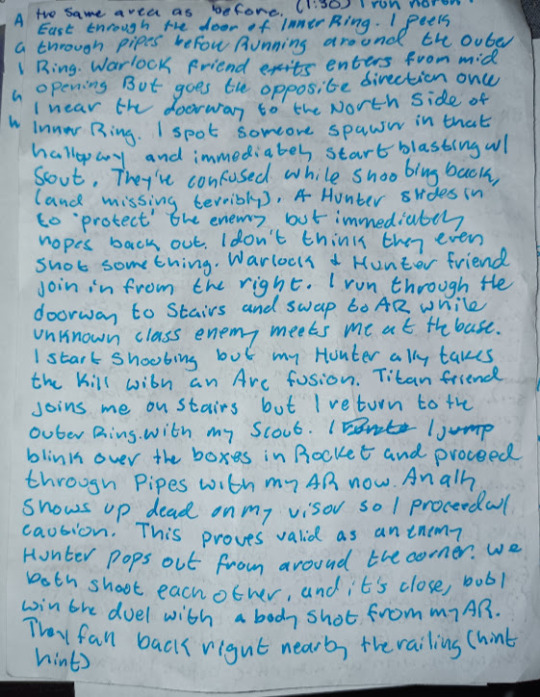 the same area as before. (1:30) I run north
East through the door of Inner Ring. I peek
through pipes before Running around the outer
Ring. Warlock friend exits enters from mid
opening But goes the opposite direction once
I near the doorway to the North Side of
Inner Ring. I spot someone spawn in that
hallway and immediately start blasting w/
Scout. They're confused while shooting back,
(and missing terribly). A Hunter slides in
to 'protect' the enemy but immediately
nopes back out. I don't think they even
shot something. Warlock + Hunter friend
join in from the right. I run through the
doorway to Stairs and swap to AR while
unknown class enemy meets me at the base.
I start shooting but my Hunter ally takes
the kill with an Arc fusion. Titan friend
joins me on stairs but I return to the
outer Ring with my Scout. I I jump
blink over the boxes in Rocket and proceed
through Pipes with my AR now. An ally
shows up dead on my visor so I proceed w/
caution. This proves valid as an enemy
Hunter pops out from around the corner. We
both shoot each other, and it's close, but I
win the duel with a body shot from my AR.
They fall back right nearby the railing (hint
hint)